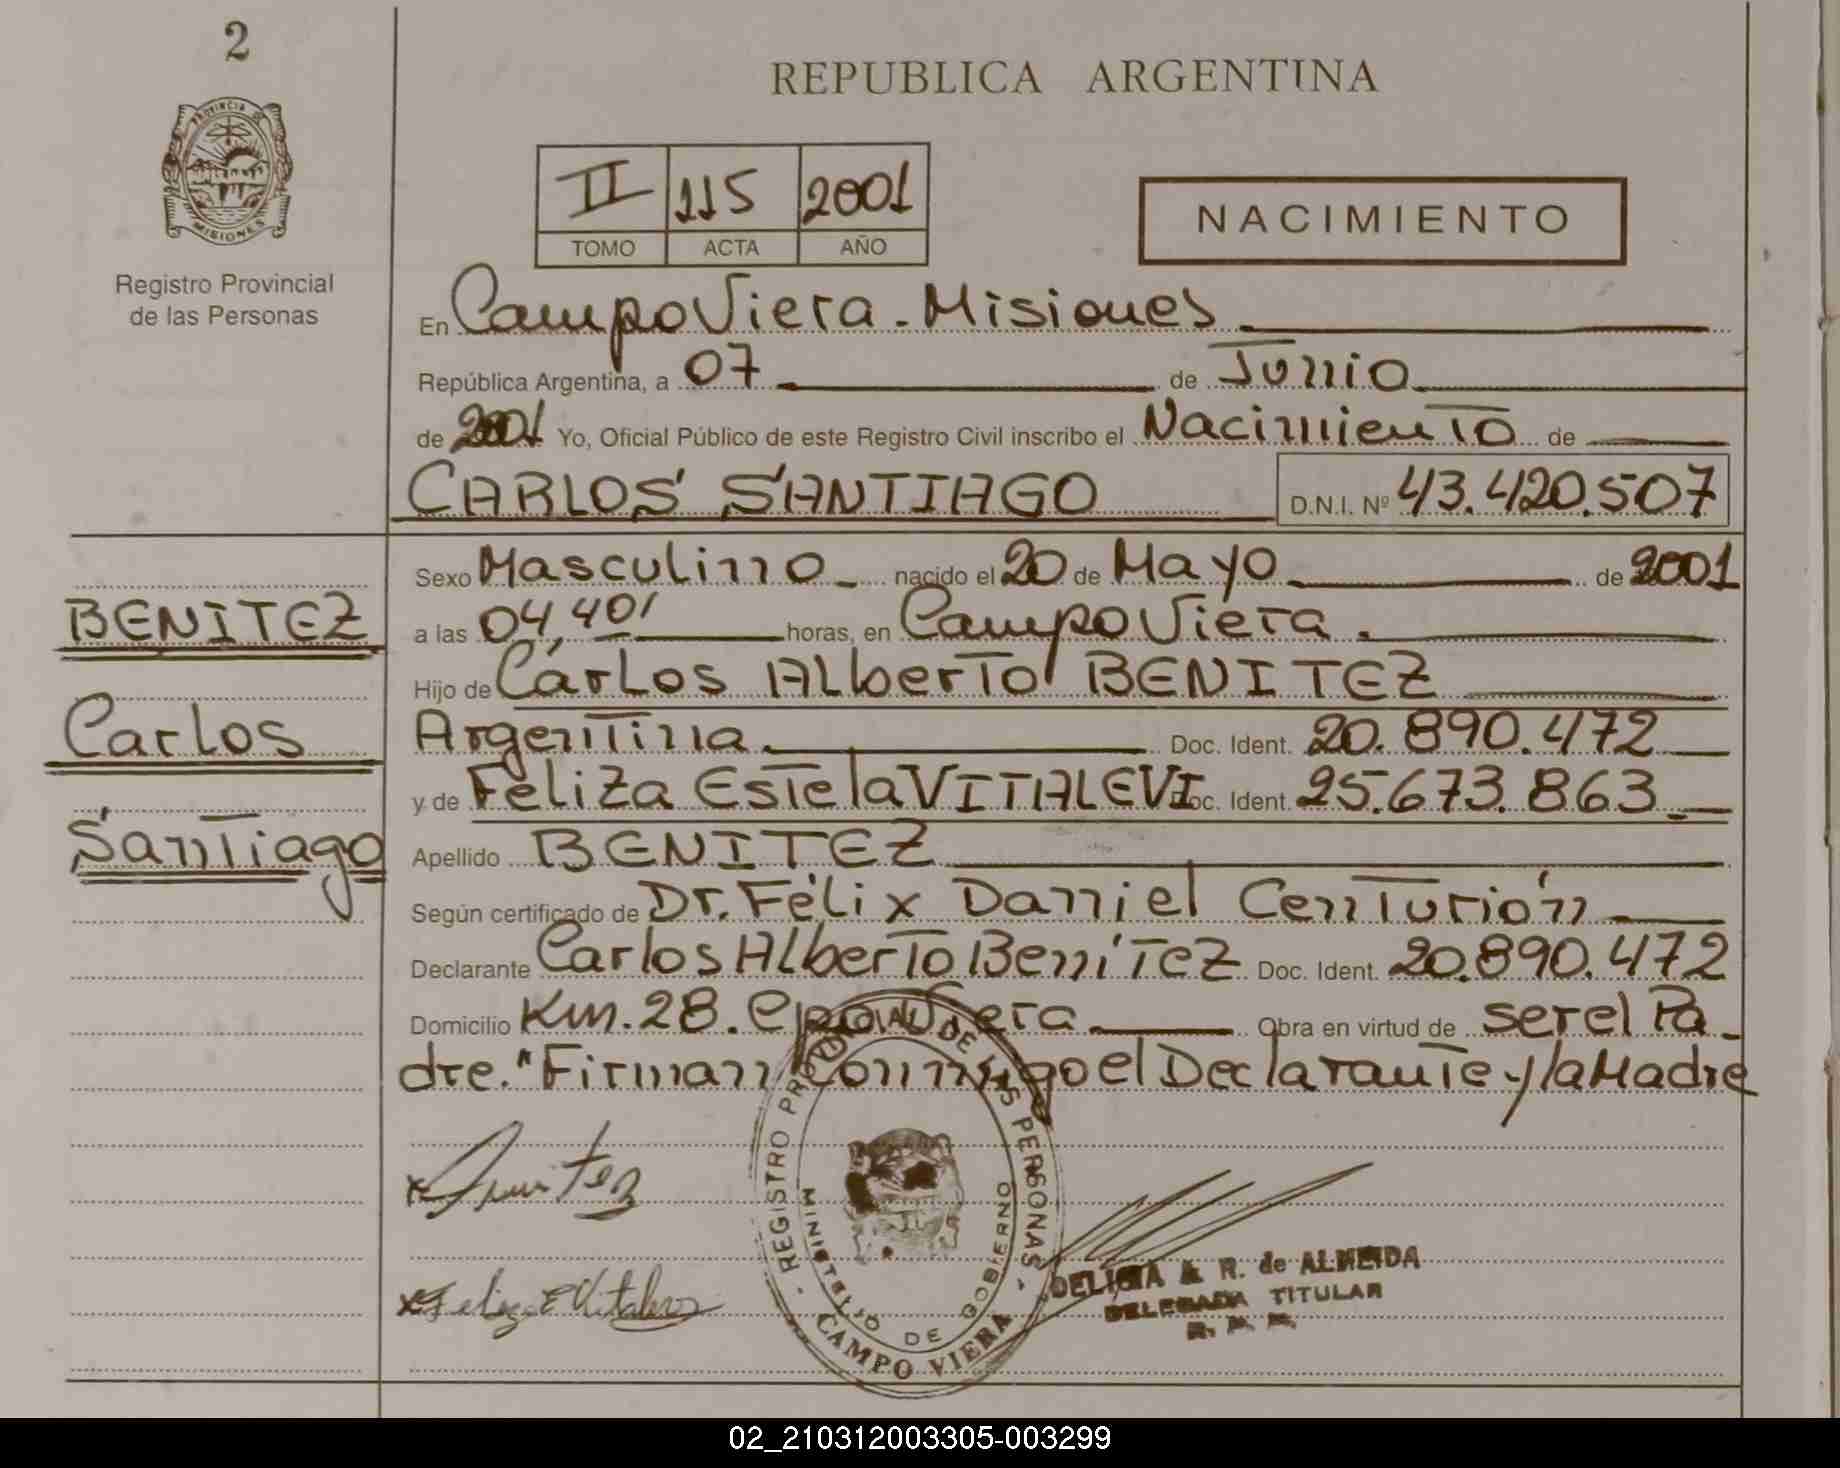 2
PROVINCIA DE
MISIONES
Registro Provincial
de las Personas
REPUBLICA ARGENTINA
II 115 2001
TOMO ACTA AÑO
NACIMIENTO
En Campo Viera - Misiones
República Argentina, a 07 de Junio
de 2001 Yo, Oficial Público de este Registro Civil inscribo el Nacimiento de
CARLOS SANTIAGO D.N.I. Nº 43.420.507
BENITEZ
Carlos
Santiago
Sexo Masculino nacido el 20 de Mayo de 2001
a las 04,40' horas, en Campo Viera.
Hijo de Carlos Alberto BENITEZ
Argentina. Doc. Ident. 20.890.472
y de Feliza Estela VITALEVI Doc. Ident. 25.673.863
Apellido BENITEZ
Según certificado de Dr. Félix Daniel Centurión
Declarante Carlos Alberto Benítez Doc. Ident. 20.890.472
Domicilio Km. 28. Cpo Viera Obra en virtud de ser el Pa-
dre." Firman Conmigo el Declarante y la Madre
REGISTRO PROVINCIAL DE LAS PERSONAS
MINISTERIO DE GOBIERNO
CAMPO VIERA
DELICIA A R. de ALMEIDA
DELEGADA TITULAR
02_210312003305-003299